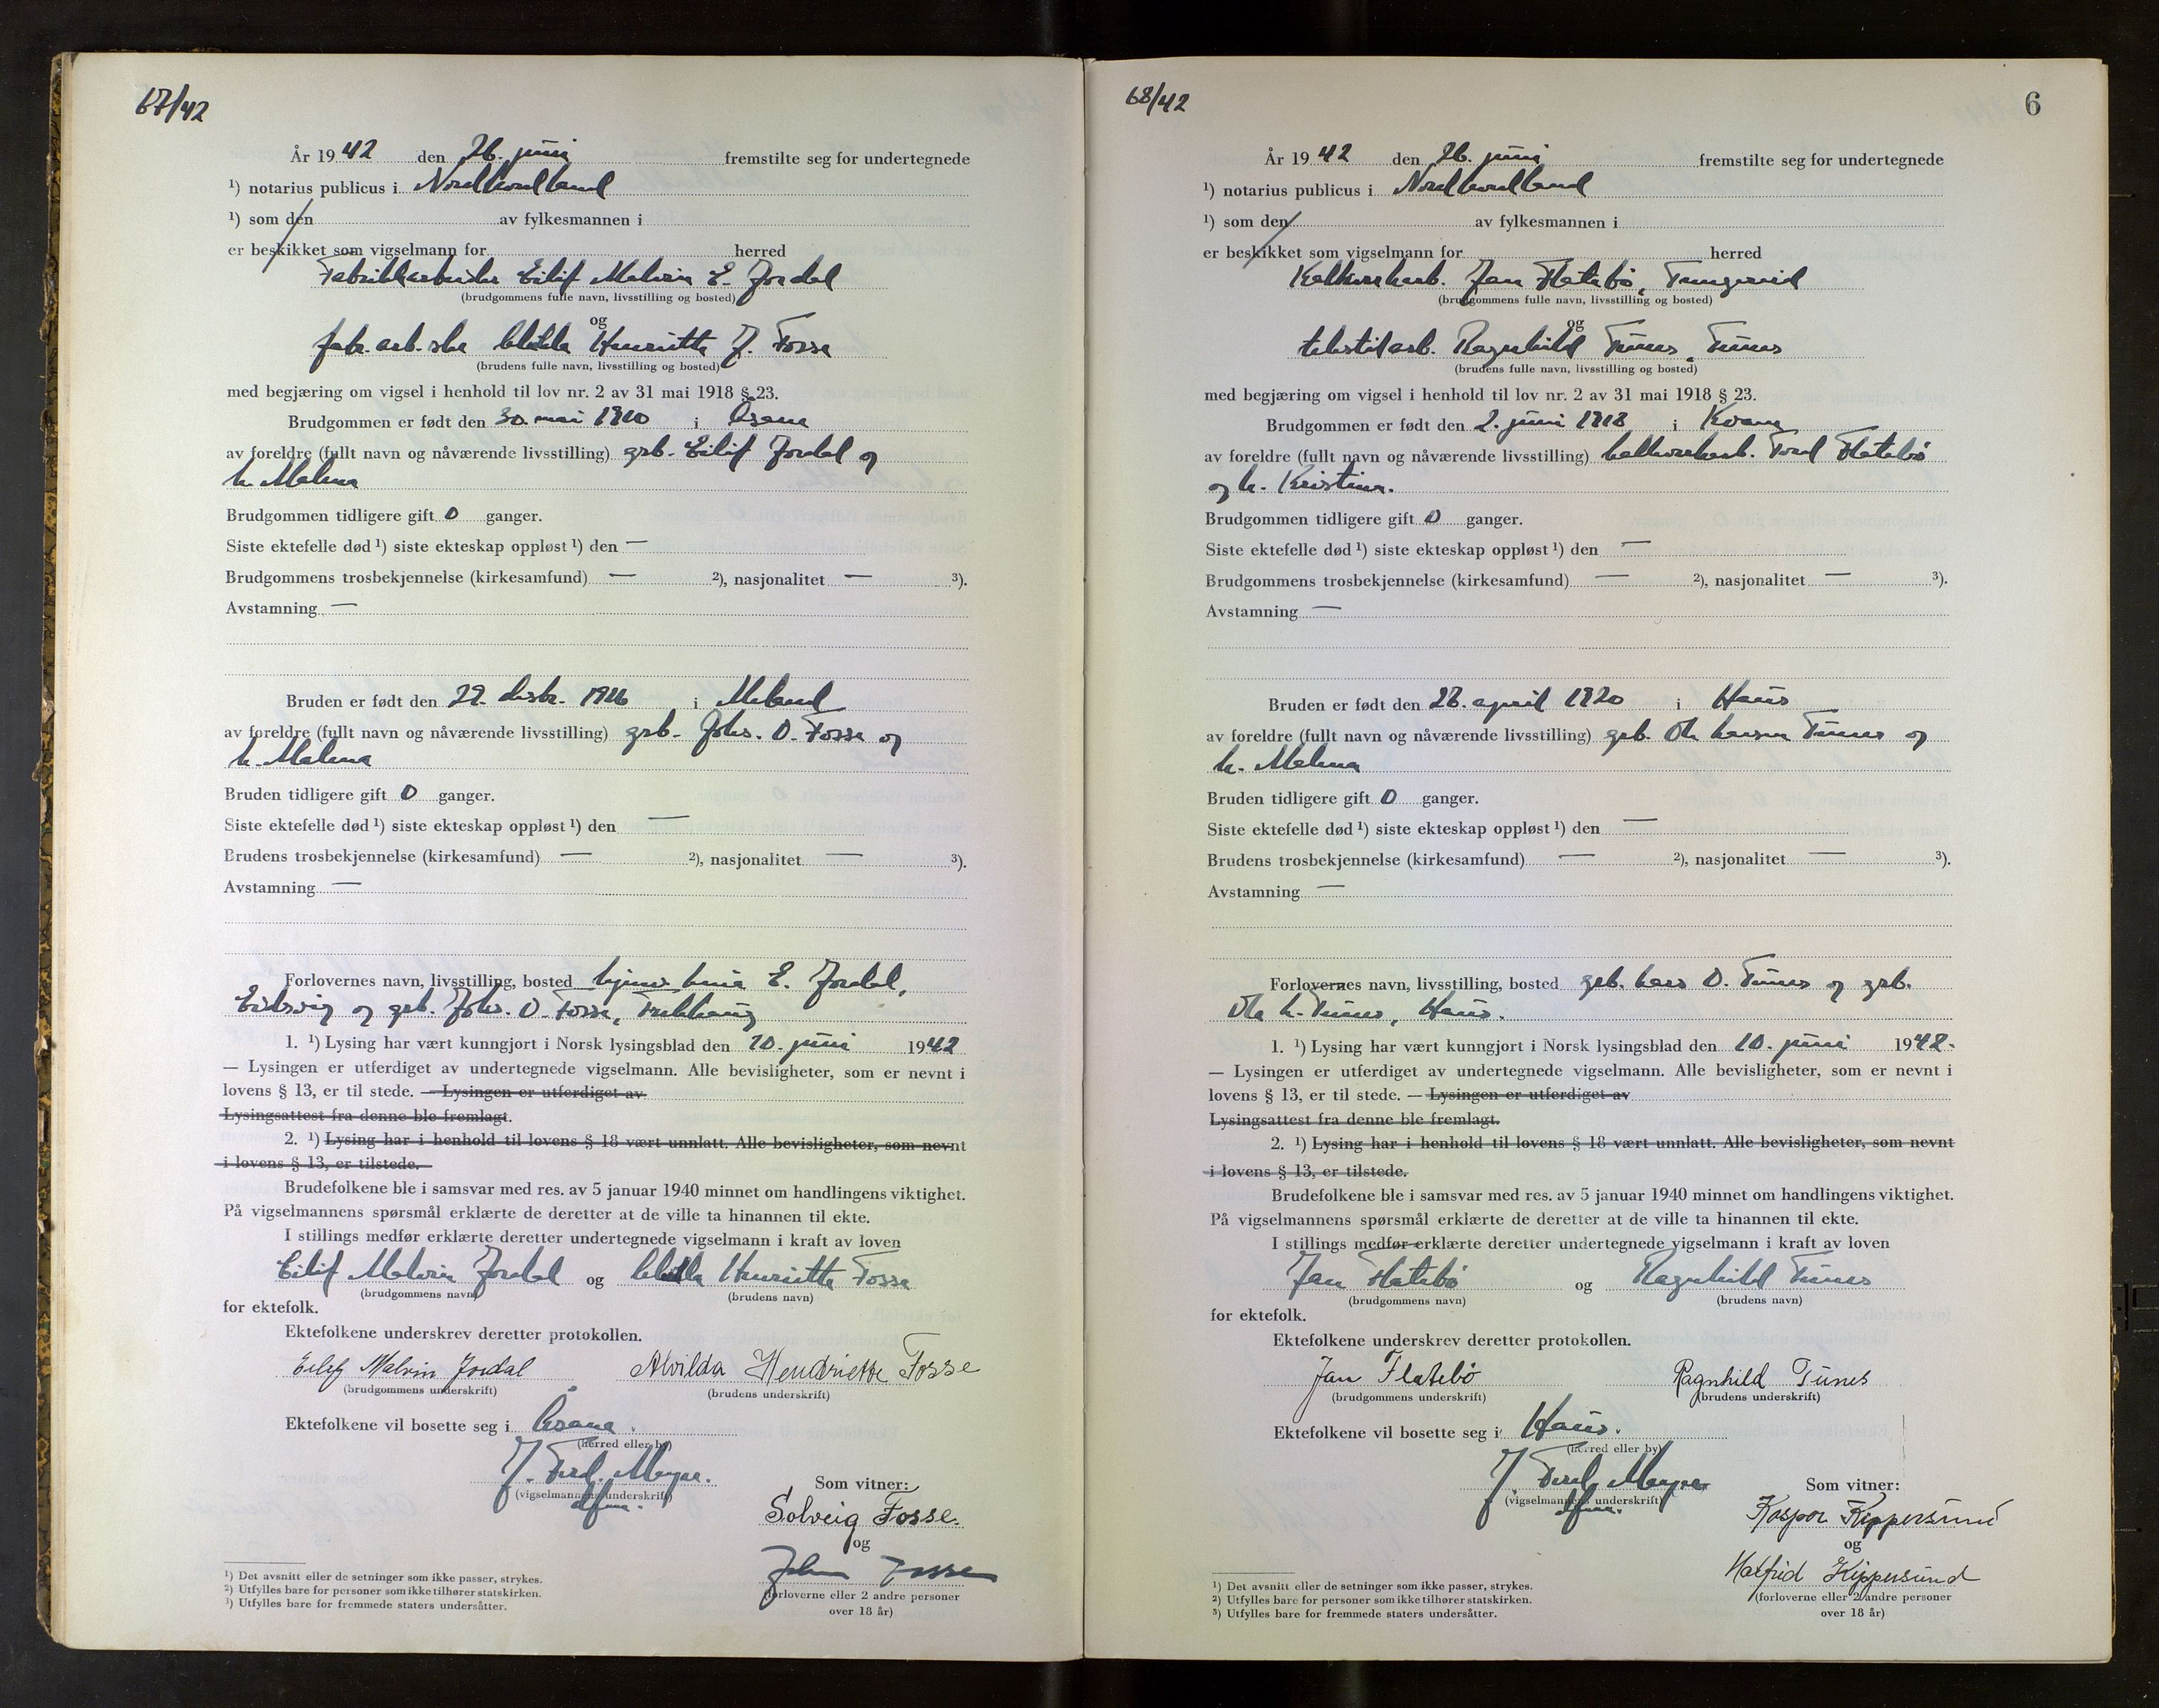 67/42
År 1942 den 26. juni fremstilte seg for undertegnede
¹) notarius publicus i Nordhordland
¹) som den av fylkesmannen i
er beskikket som vigselmann for herred
Fabrikkarbeider Eilif Malvin E. Jordal
(brudgommens fulle navn, livsstilling og bosted)
og
fabr.arb.ske Alvilda Henriette J. Fosse
(brudens fulle navn, livsstilling og bosted)
med begjæring om vigsel i henhold til lov nr. 2 av 31 mai 1918 § 23.
Brudgommen er født den 30. mai 1910 i Åsane
av foreldre (fullt navn og nåværende livsstilling) grb. Eilif Jordal og
h. Malena
Brudgommen tidligere gift 0 ganger.
Siste ektefelle død ¹) siste ekteskap oppløst ¹) den —
Brudgommens trosbekjennelse (kirkesamfund) — ²), nasjonalitet — ³).
Avstamning —
Bruden er født den 29. desbr. 1916 i Meland
av foreldre (fullt navn og nåværende livsstilling) grb. Johs. O. Fosse og
h. Malena
Bruden tidligere gift 0 ganger.
Siste ektefelle død ¹) siste ekteskap oppløst ¹) den —
Brudens trosbekjennelse (kirkesamfund) — ²), nasjonalitet — ³).
Avstamning —
Forlovernes navn, livsstilling, bosted E. Jordal,
Eidsvåg og grb. Johs. O. Fosse, Frekhaug
1. ¹) Lysing har vært kunngjort i Norsk lysingsblad den 10. juni 1942
— Lysingen er utferdiget av undertegnede vigselmann. Alle bevisligheter, som er nevnt i
lovens § 13, er til stede. — Lysingen er utferdiget av
Lysingsattest fra denne ble fremlagt.
2. ¹) Lysing har i henhold til lovens § 18 vært unnlatt. Alle bevisligheter, som nevnt
i lovens § 13, er tilstede.
Brudefolkene ble i samsvar med res. av 5 januar 1940 minnet om handlingens viktighet.
På vigselmannens spørsmål erklærte de deretter at de ville ta hinannen til ekte.
I stillings medfør erklærte deretter undertegnede vigselmann i kraft av loven
Eilif Malvin Jordal og Alvilda Henriette Fosse
(brudgommens navn) (brudens navn)
for ektefolk.
Ektefolkene underskrev deretter protokollen.
Eilif Malvin Jordal Alvilda Hendriette Fosse
(brudgommens underskrift) (brudens underskrift)
Ektefolkene vil bosette seg i Åsane.
(herred eller by)
J. Ferd. Meyer.
(vigselmannens underskrift)
Som vitner:
Solveig Fosse.
og
Johan Fosse
(forloverne eller 2 andre personer
over 18 år)
¹) Det avsnitt eller de setninger som ikke passer, strykes.
²) Utfylles bare for personer som ikke tilhører statskirken.
³) Utfylles bare for fremmede staters undersåtter.
68/42
6
År 1942 den 26. juni fremstilte seg for undertegnede
¹) notarius publicus i Nordhordland
¹) som den av fylkesmannen i
er beskikket som vigselmann for herred
Kalkverkarb. Jan Flatebö, Tungesvik
(brudgommens fulle navn, livsstilling og bosted)
og
tekstilarb. Ragnhild Tunes, Tunes
(brudens fulle navn, livsstilling og bosted)
med begjæring om vigsel i henhold til lov nr. 2 av 31 mai 1918 § 23.
Brudgommen er født den 2. juni 1918 i Kvam
av foreldre (fullt navn og nåværende livsstilling) kalkverkarb. Tord Flatebö
og h. Kristina.
Brudgommen tidligere gift 0 ganger.
Siste ektefelle død ¹) siste ekteskap oppløst ¹) den —
Brudgommens trosbekjennelse (kirkesamfund) — ²), nasjonalitet — ³).
Avstamning —
Bruden er født den 28. april 1920 i Haus
av foreldre (fullt navn og nåværende livsstilling) grb. Ole Larsen Tunes og
h. Malena
Bruden tidligere gift 0 ganger.
Siste ektefelle død ¹) siste ekteskap oppløst ¹) den —
Brudens trosbekjennelse (kirkesamfund) — ²), nasjonalitet — ³).
Avstamning —
Forlovernes navn, livsstilling, bosted grb. Lars O. Tunes og grb.
Ole L. Tunes, Haus.
1. ¹) Lysing har vært kunngjort i Norsk lysingsblad den 10. juni 1942.
— Lysingen er utferdiget av undertegnede vigselmann. Alle bevisligheter, som er nevnt i
lovens § 13, er til stede. — Lysingen er utferdiget av
Lysingsattest fra denne ble fremlagt.
2. ¹) Lysing har i henhold til lovens § 18 vært unnlatt. Alle bevisligheter, som nevnt
i lovens § 13, er tilstede.
Brudefolkene ble i samsvar med res. av 5 januar 1940 minnet om handlingens viktighet.
På vigselmannens spørsmål erklærte de deretter at de ville ta hinannen til ekte.
I stillings medfør erklærte deretter undertegnede vigselmann i kraft av loven
Jan Flatebö og Ragnhild Tunes
(brudgommens navn) (brudens navn)
for ektefolk.
Ektefolkene underskrev deretter protokollen.
Jan Flatebö Ragnhild Tunes
(brudgommens underskrift) (brudens underskrift)
Ektefolkene vil bosette seg i Haus.
(herred eller by)
J. Ferd. Meyer
(vigselmannens underskrift)
Som vitner:
Kaspar Kippersund
og
Halfrid Kippersund
(forloverne eller 2 andre personer
over 18 år)
¹) Det avsnitt eller de setninger som ikke passer, strykes.
²) Utfylles bare for personer som ikke tilhører statskirken.
³) Utfylles bare for fremmede staters undersåtter.